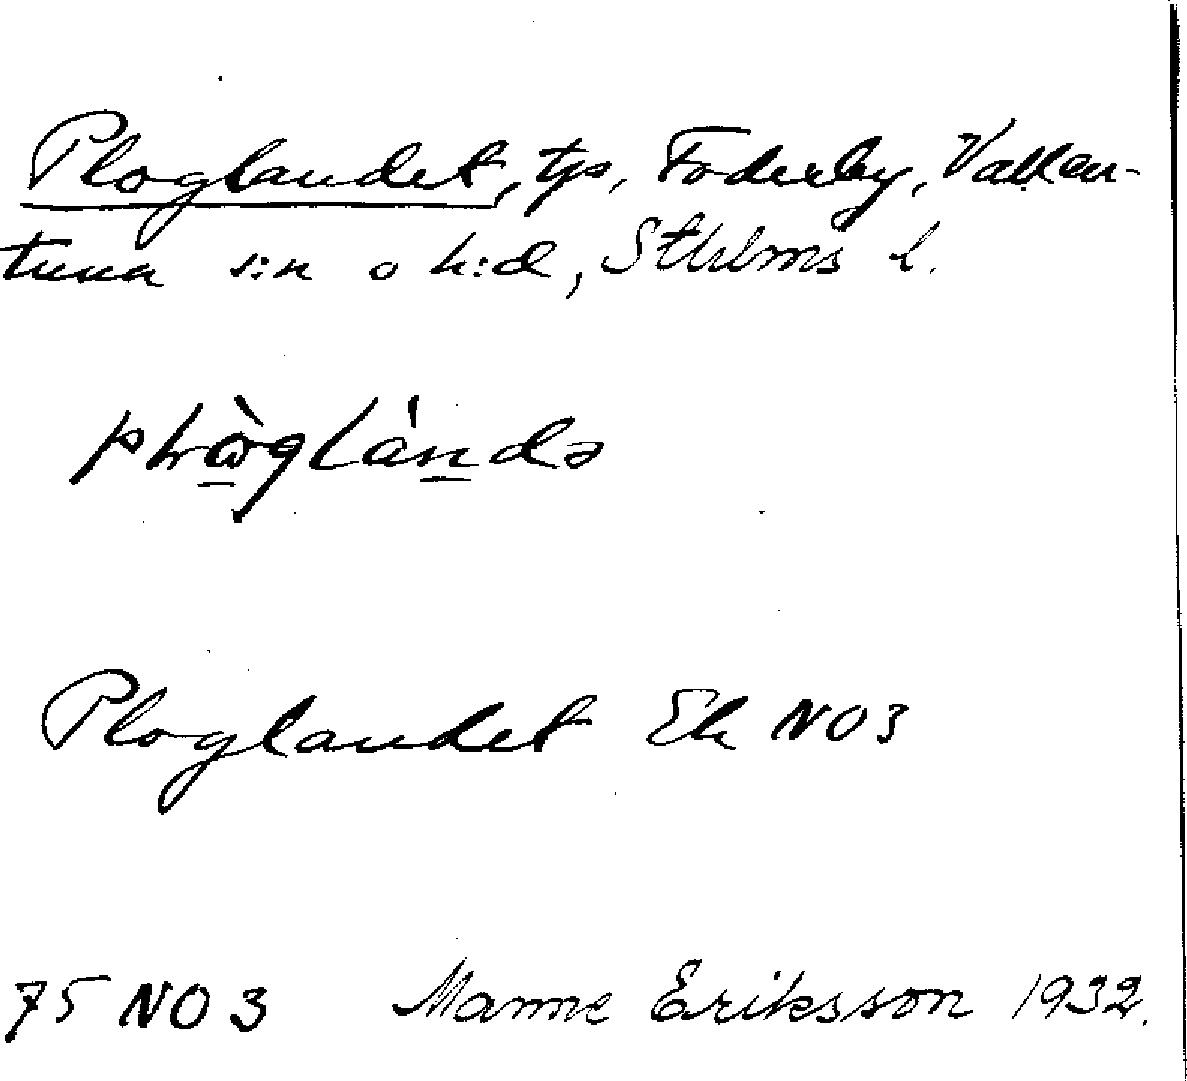 Ploglandet, tps, Foderby, Vallen-
tuna s:n o h:d, Sthlms l.
Ploglandet Ek NO3
75 NO 3 Manne Eriksson 1932.